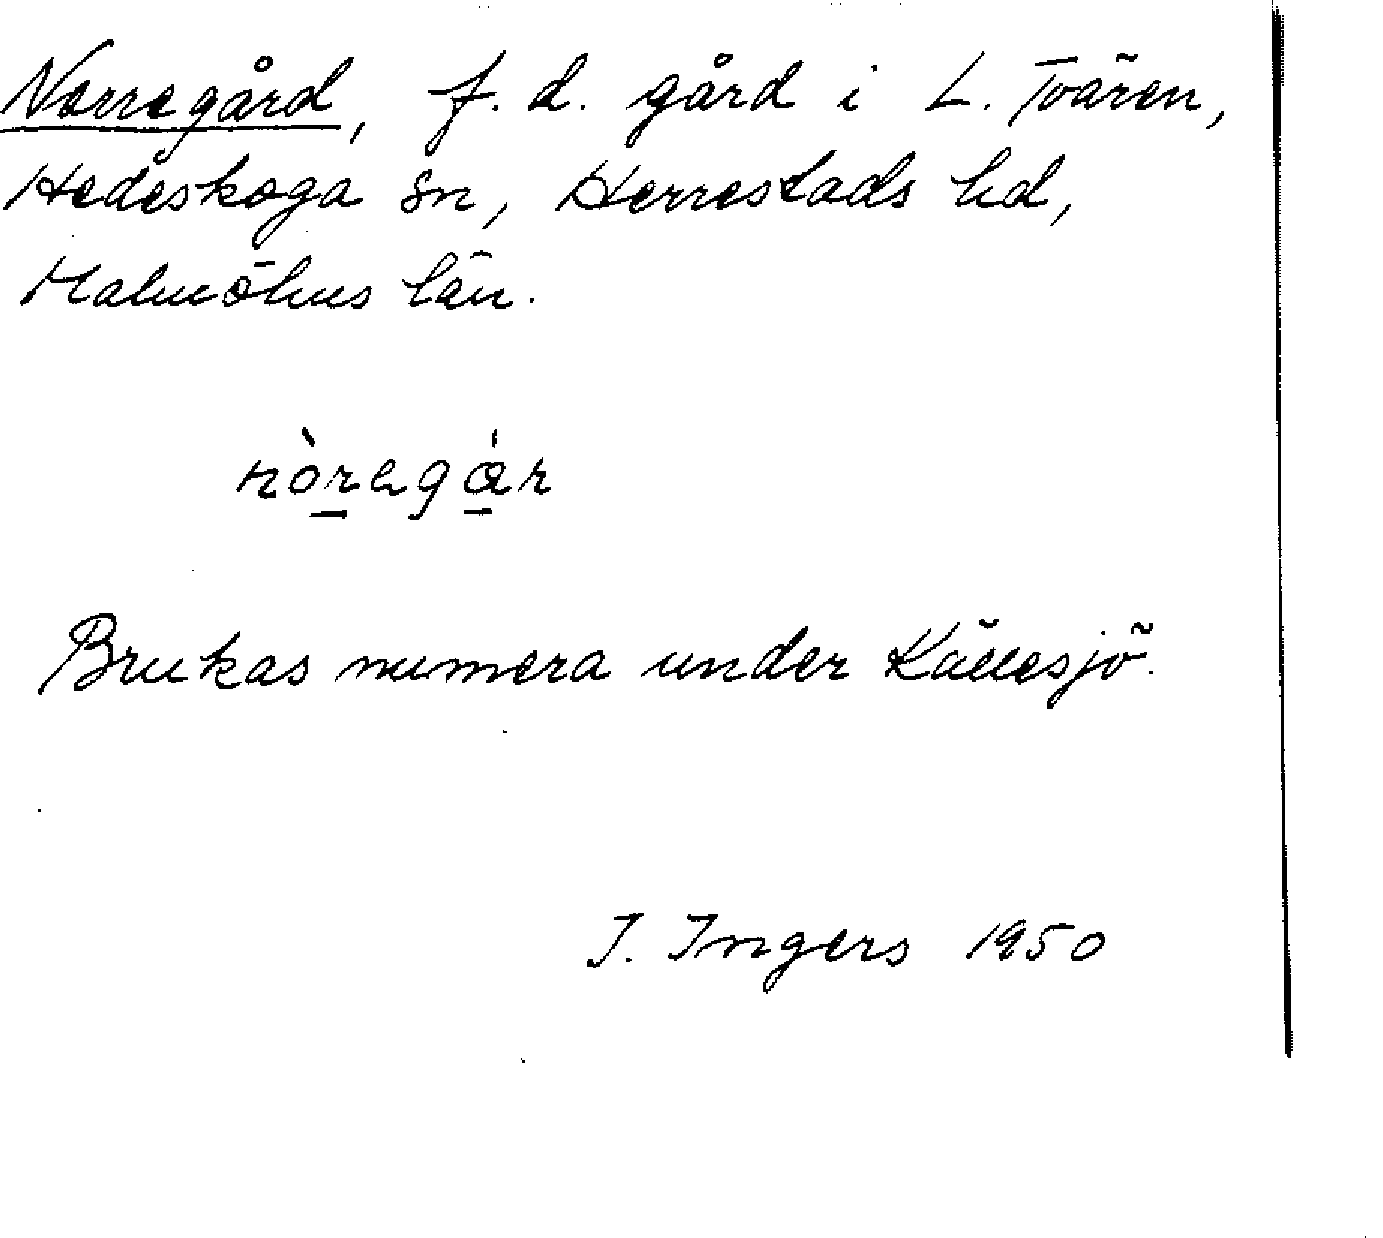 Norregård, f. d. gård i L. Tvären,
Hedeskoga sn, Herrestads hd,
Malmöhus län.
nòragár
Brukas numera under Källesjö.
I. Ingers 1950